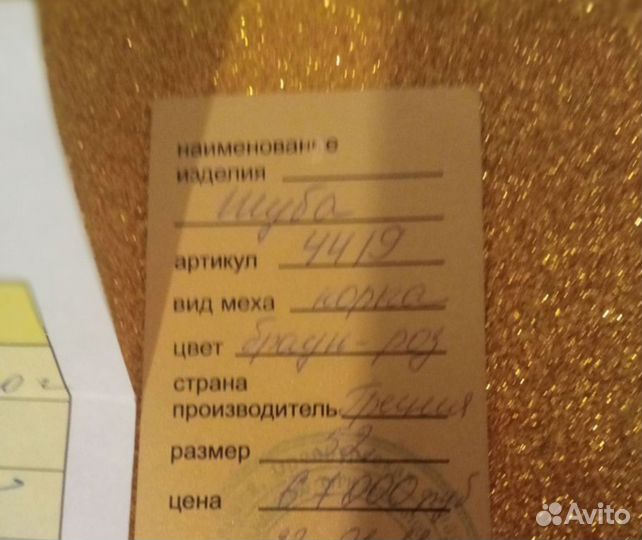 наименование
изделия
шуба
артикул 4419
вид меха норка
цвет браун-роз
страна
производитель Греция
размер 52
цена 67000 руб
Avito